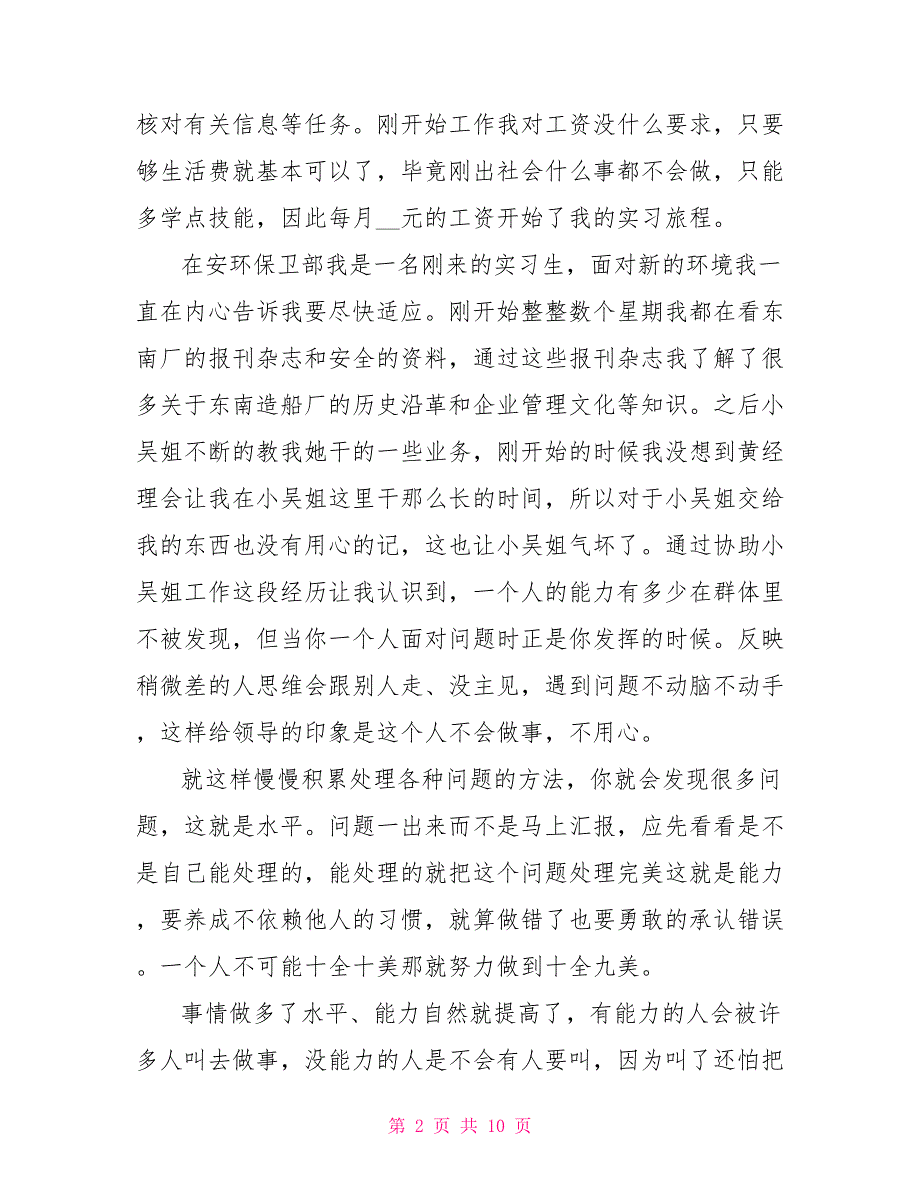 核对有关信息等任务。刚开始工作我对工资没什么要求，只要
够生活费就基本可以了，毕竟刚出社会什么事都不会做，只能
多学点技能，因此每月__元的工资开始了我的实习旅程。
在安环保卫部我是一名刚来的实习生，面对新的环境我一
直在内心告诉我要尽快适应。刚开始整整数个星期我都在看东
南厂的报刊杂志和安全的资料，通过这些报刊杂志我了解了很
多关于东南造船厂的历史沿革和企业管理文化等知识。之后小
吴姐不断的教我她干的一些业务，刚开始的时候我没想到黄经
理会让我在小吴姐这里干那么长的时间，所以对于小吴姐交给
我的东西也没有用心的记，这也让小吴姐气坏了。通过协助小
吴姐工作这段经历让我认识到，一个人的能力有多少在群体里
不被发现，但当你一个人面对问题时正是你发挥的时候。反映
稍微差的人思维会跟别人走、没主见，遇到问题不动脑不动手
，这样给领导的印象是这个人不会做事，不用心。
就这样慢慢积累处理各种问题的方法，你就会发现很多问
题，这就是水平。问题一出来而不是马上汇报，应先看看是不
是自己能处理的，能处理的就把这个问题处理完美这就是能力
，要养成不依赖他人的习惯，就算做错了也要勇敢的承认错误
。一个人不可能十全十美那就努力做到十全九美。
事情做多了水平、能力自然就提高了，有能力的人会被许
多人叫去做事，没能力的人是不会有人要叫，因为叫了还怕把
第 2 页 共 10 页